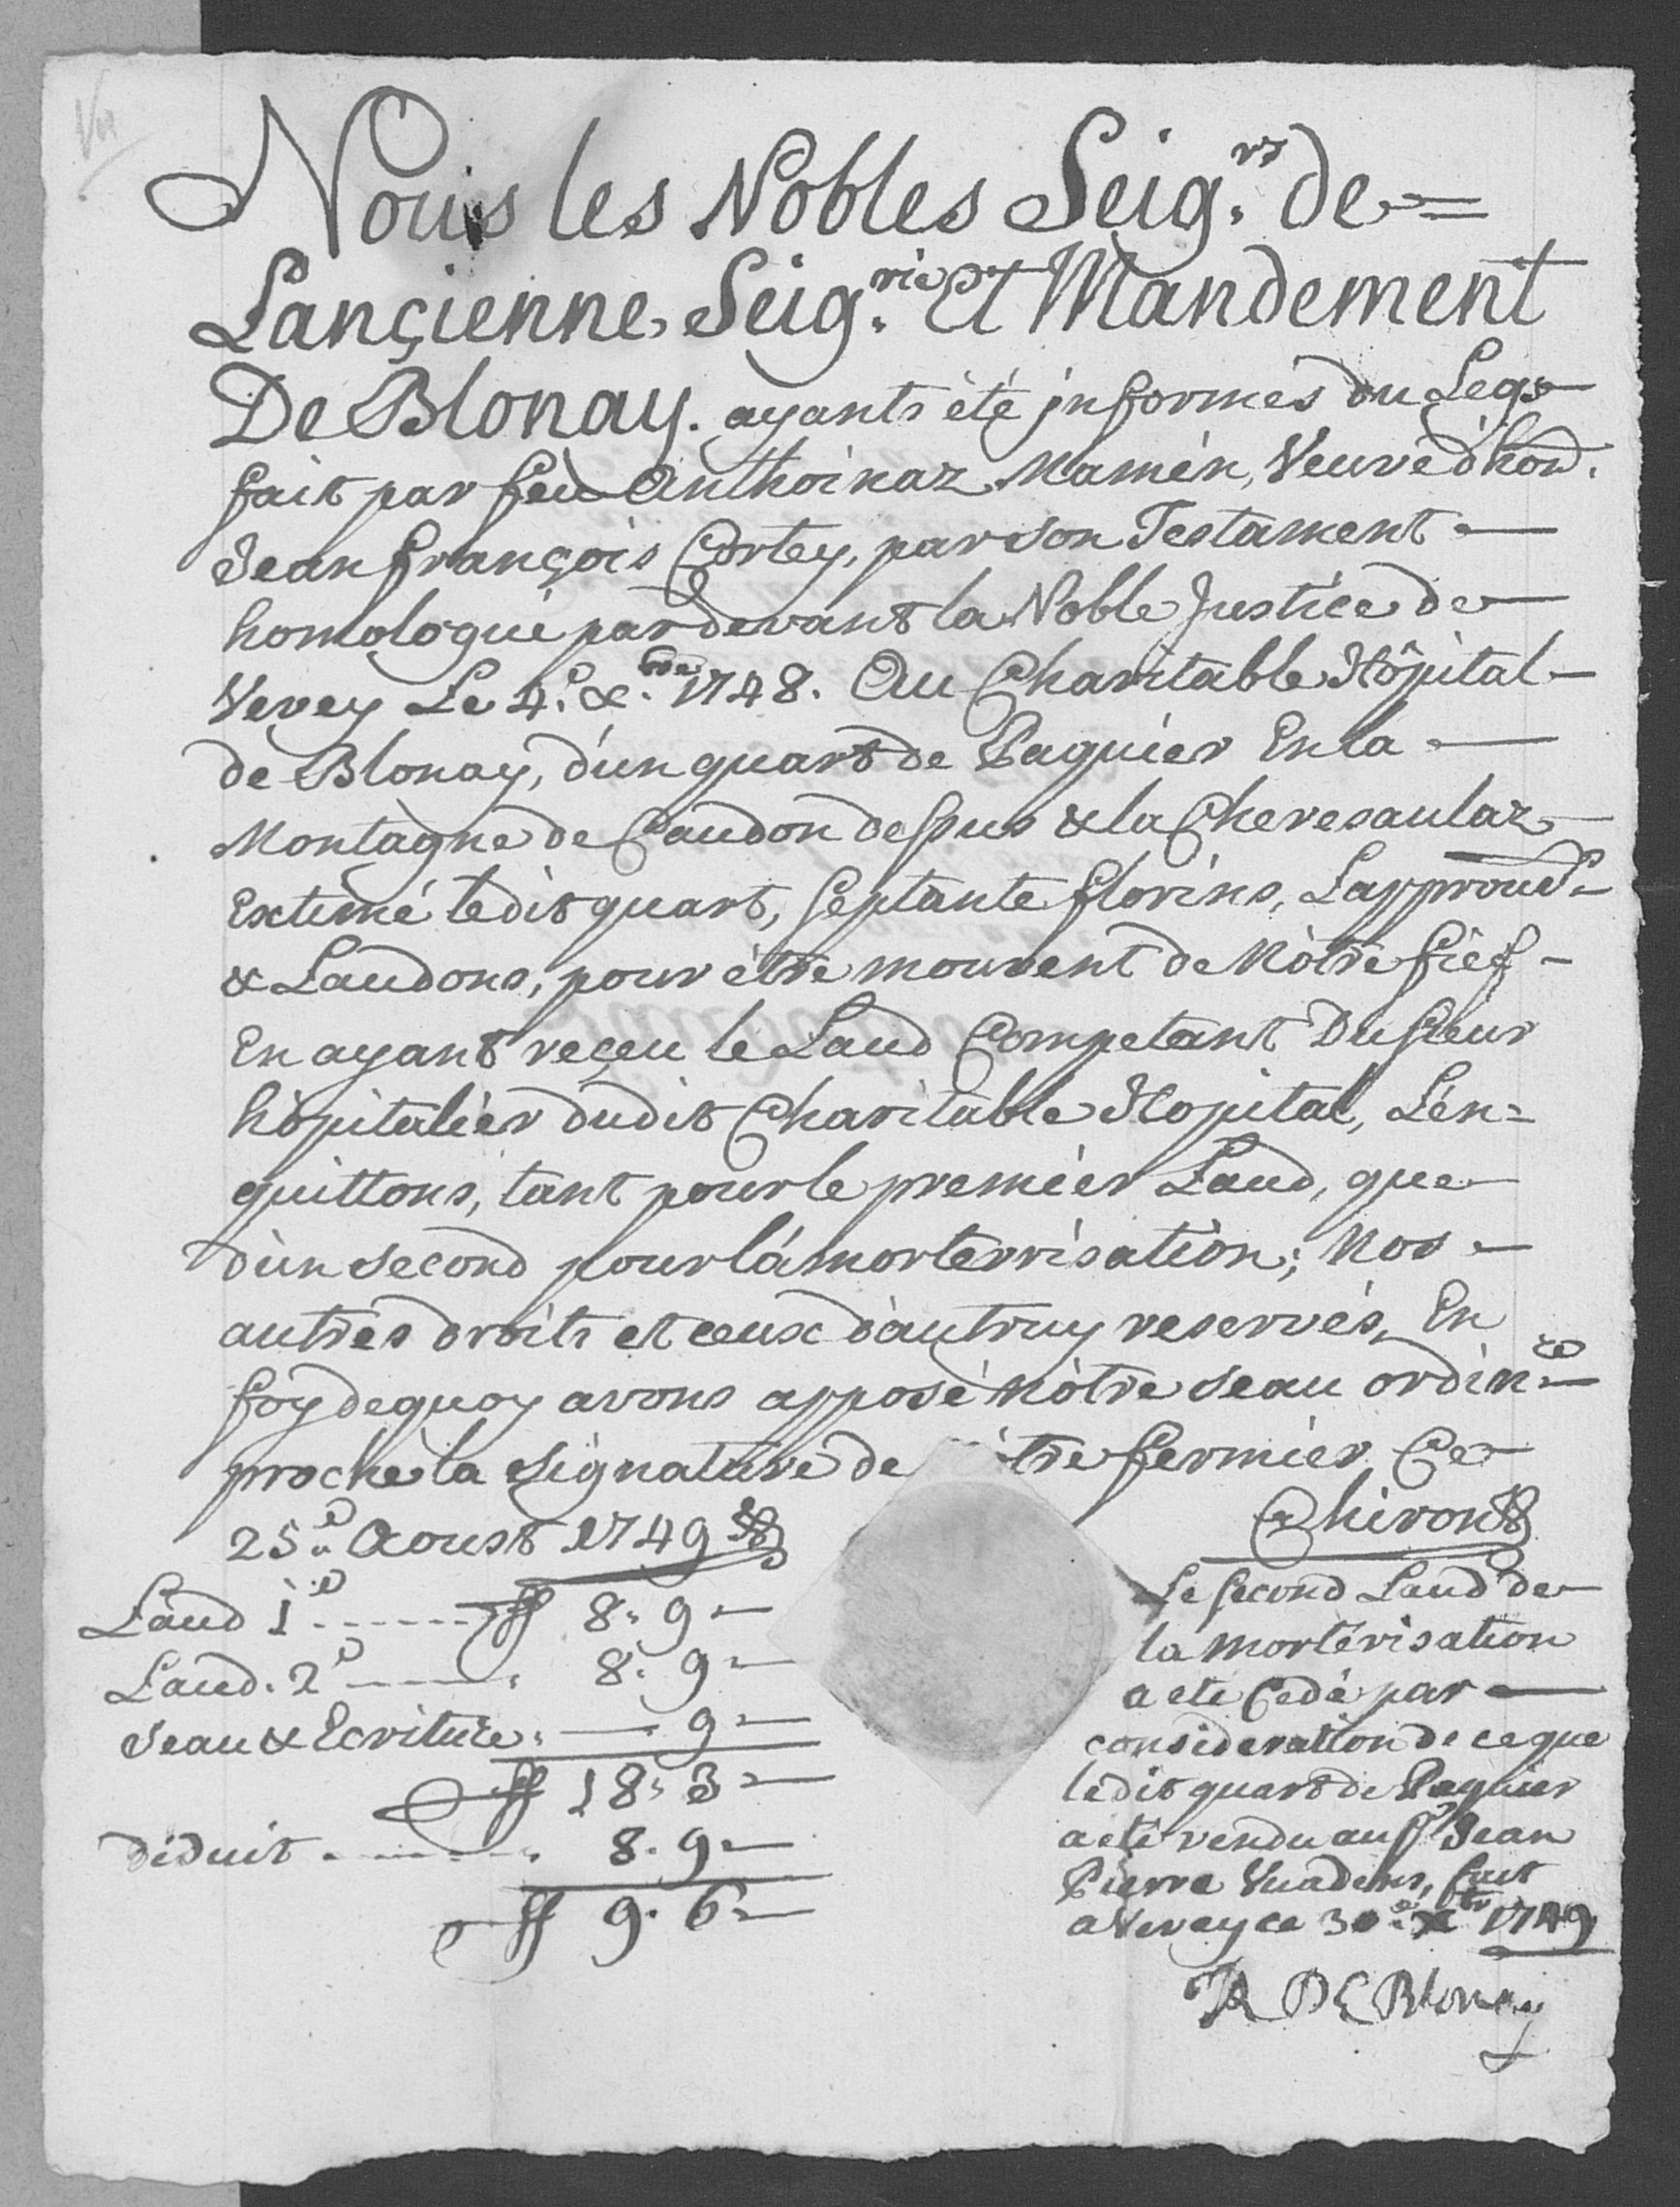 Nous les Nobles Seig.rs de
Lançienne Seig.rie Et Mandement
De Blonay. ayants été jnformés du Legs
fait par feu Anthoinaz Mamin, Veuve d'hon.
Jean françois Cortey, par son Testament
homologué pardevant la Noble Justice de
Vevey Le 4.e Xbre 1748. Au Charitable Hôpital
de Blonay, d'un quart de Paquier En la
Montagne de Caudon dessus & la Cheresaulaz
Extimé ledit quart, septante florins, Lapprouv.s
& Laudons, pour être mouvent de Nôtre fief
En ayant reçeu le Laud Competant Du sieur
hôpitalier dudit Charitable Hopital, L'en=
quittons, tant pour le premier Laud, que
d'un second pour l'amorterrisation; Nos
autres droits et ceux d'autruy reservés, En
foy dequoy avons apposé Nôtre seau ordin.re
proche la signature de nôtre fermier Ce
25.e Aoust 1749
Chiron
Laud 1.e ff 8 " 9
Laud. 2.e " 8 " 9
Seau & Ecriture " 9
ff 18 " 3
déduit " 8 " 9
ff 9 " 6
Le second Laud de
la mortérisation
a eté Cedé par
consideration de ce que
ledit quart de Paquier
a eté vendu au Sr Jean
Pierre Vuadens, fait
a Vevey ce 30.e Xbr 1749
De Blonay